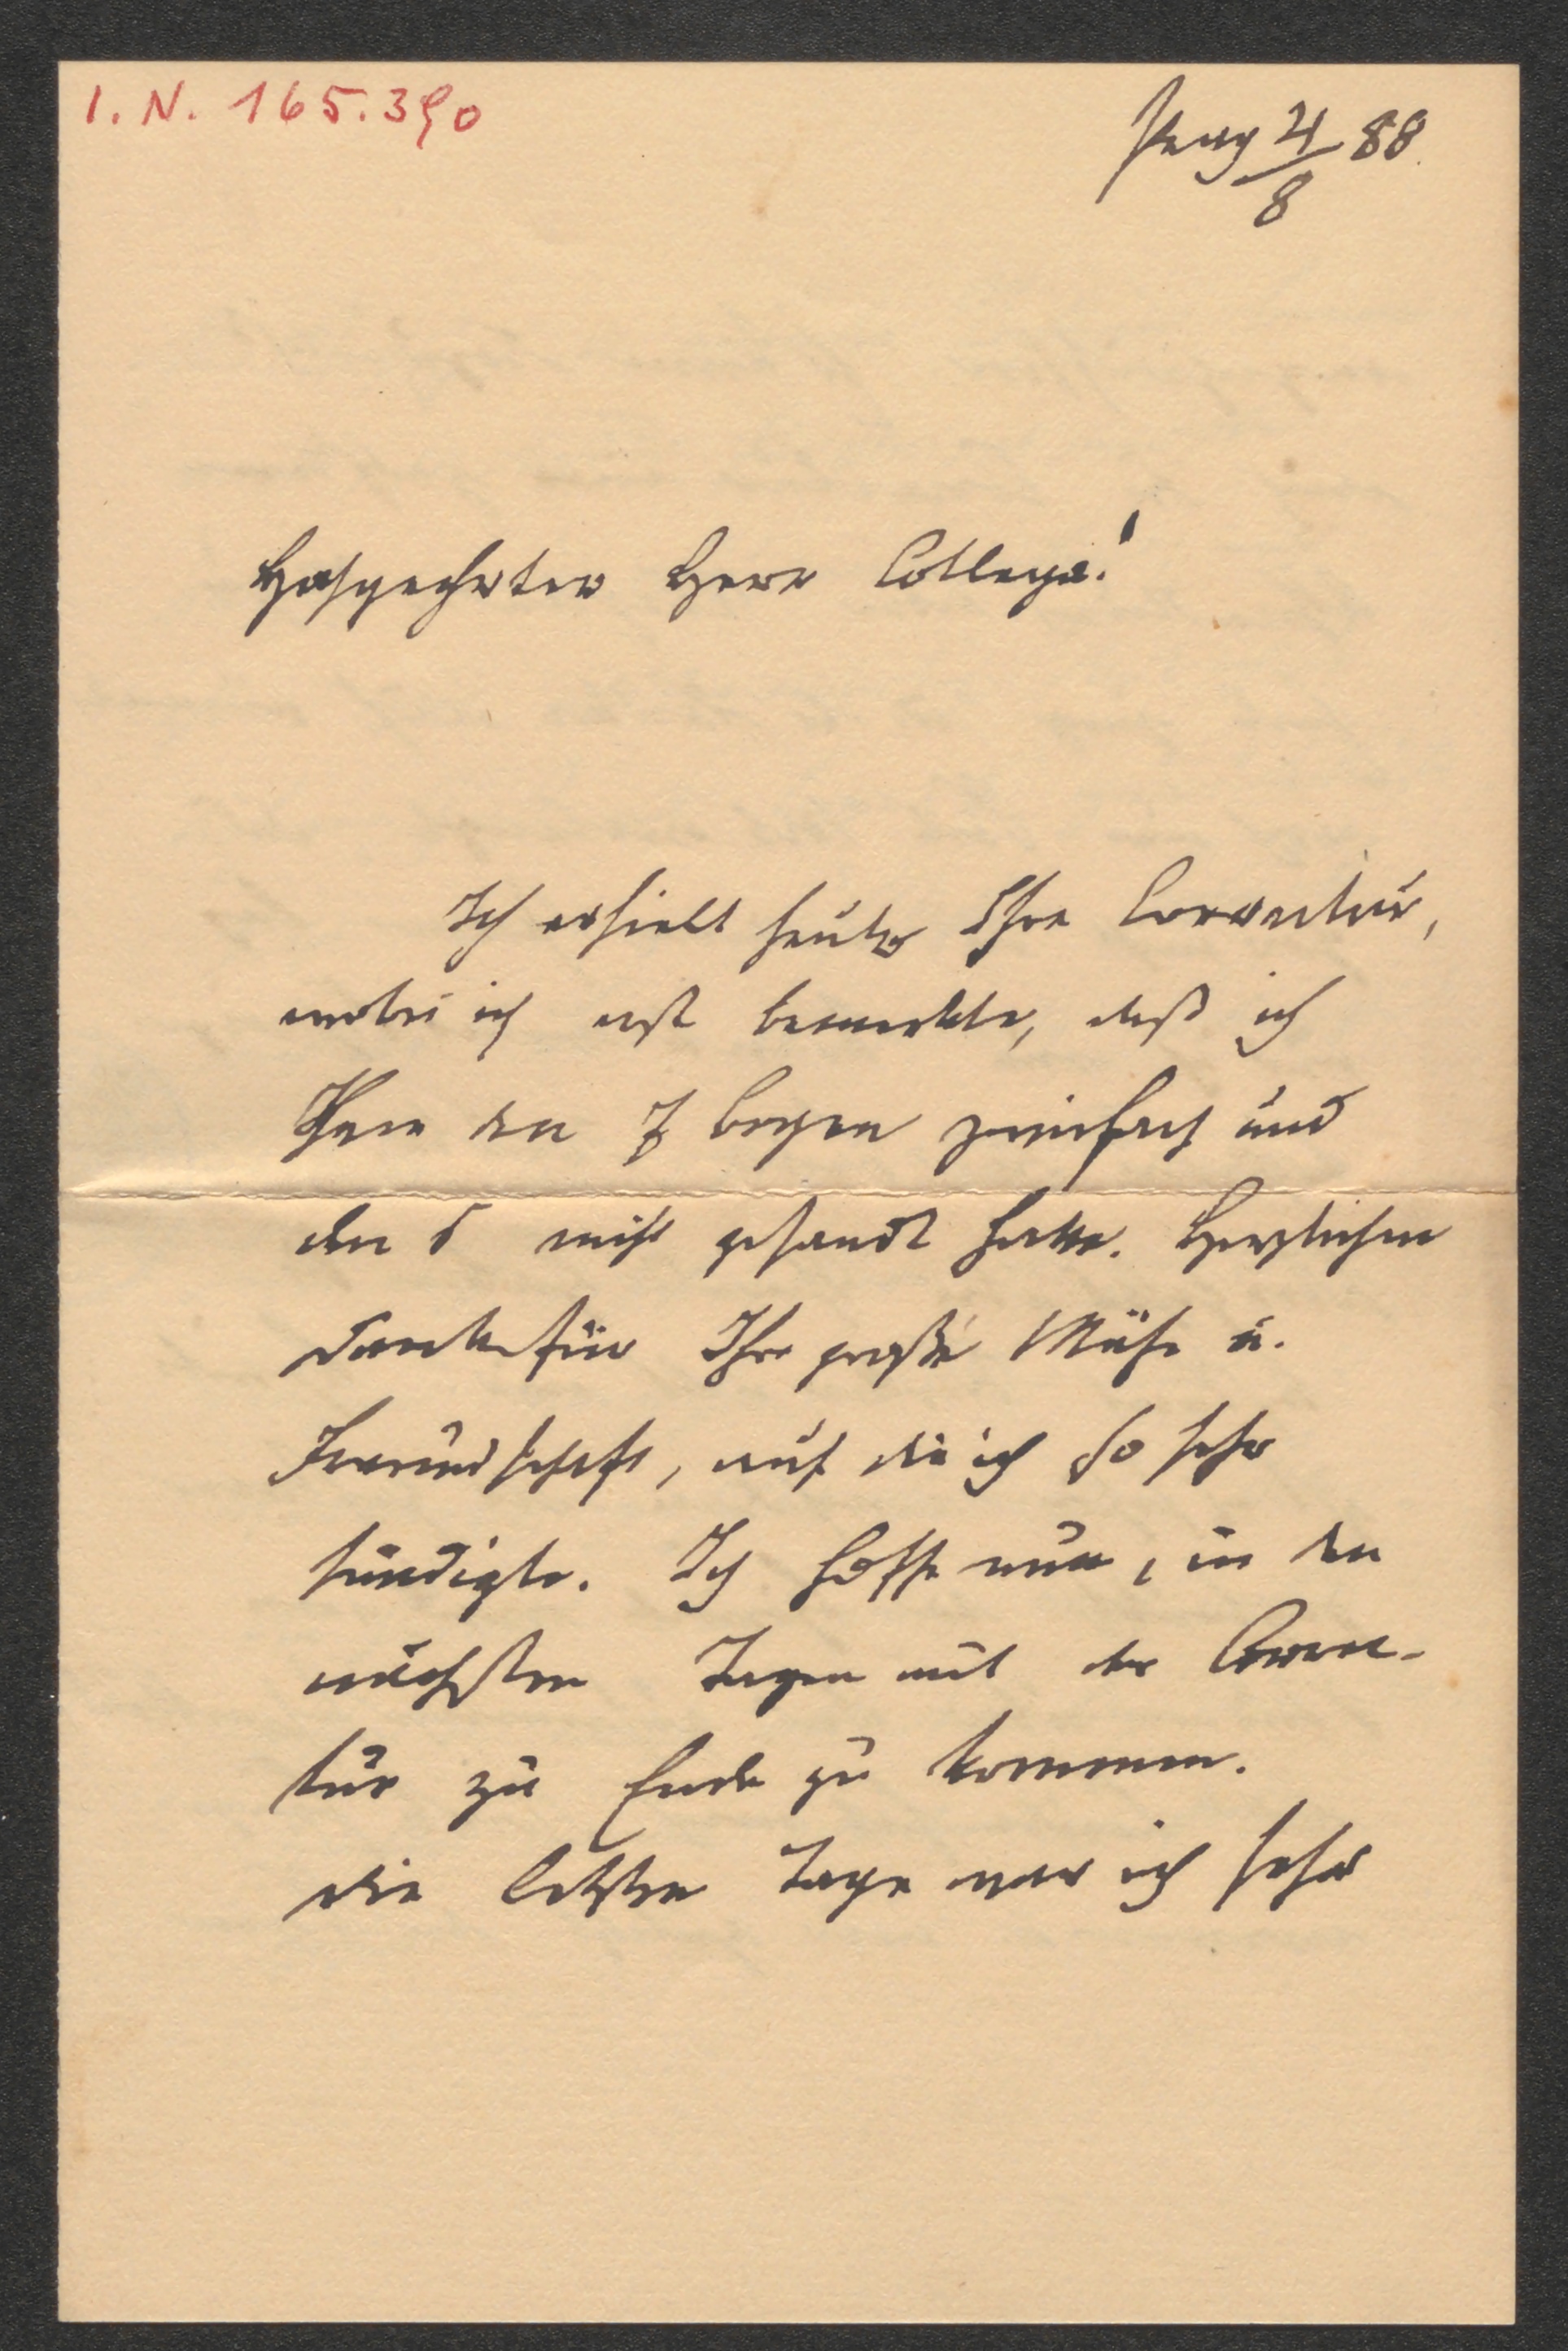 I.N. 165.390
Prag 4/8 88.
Hochgeehrter Herr College!
Ich erhielt heute Ihre Correctur,
wobei ich erst bemerkte, daß ich
Ihnen den 7 Bogen zweifach und
den 6 nicht gesandt hatte. Herzlichen
Dank für Ihre große Mühe u.
Freundschaft, auf die ich so sehr
sündigte. Ich hoffe nun, in den
nächsten Tagen mit der Correc-
tur zu Ende zu kommen.
Die letzten Tage war ich sehr